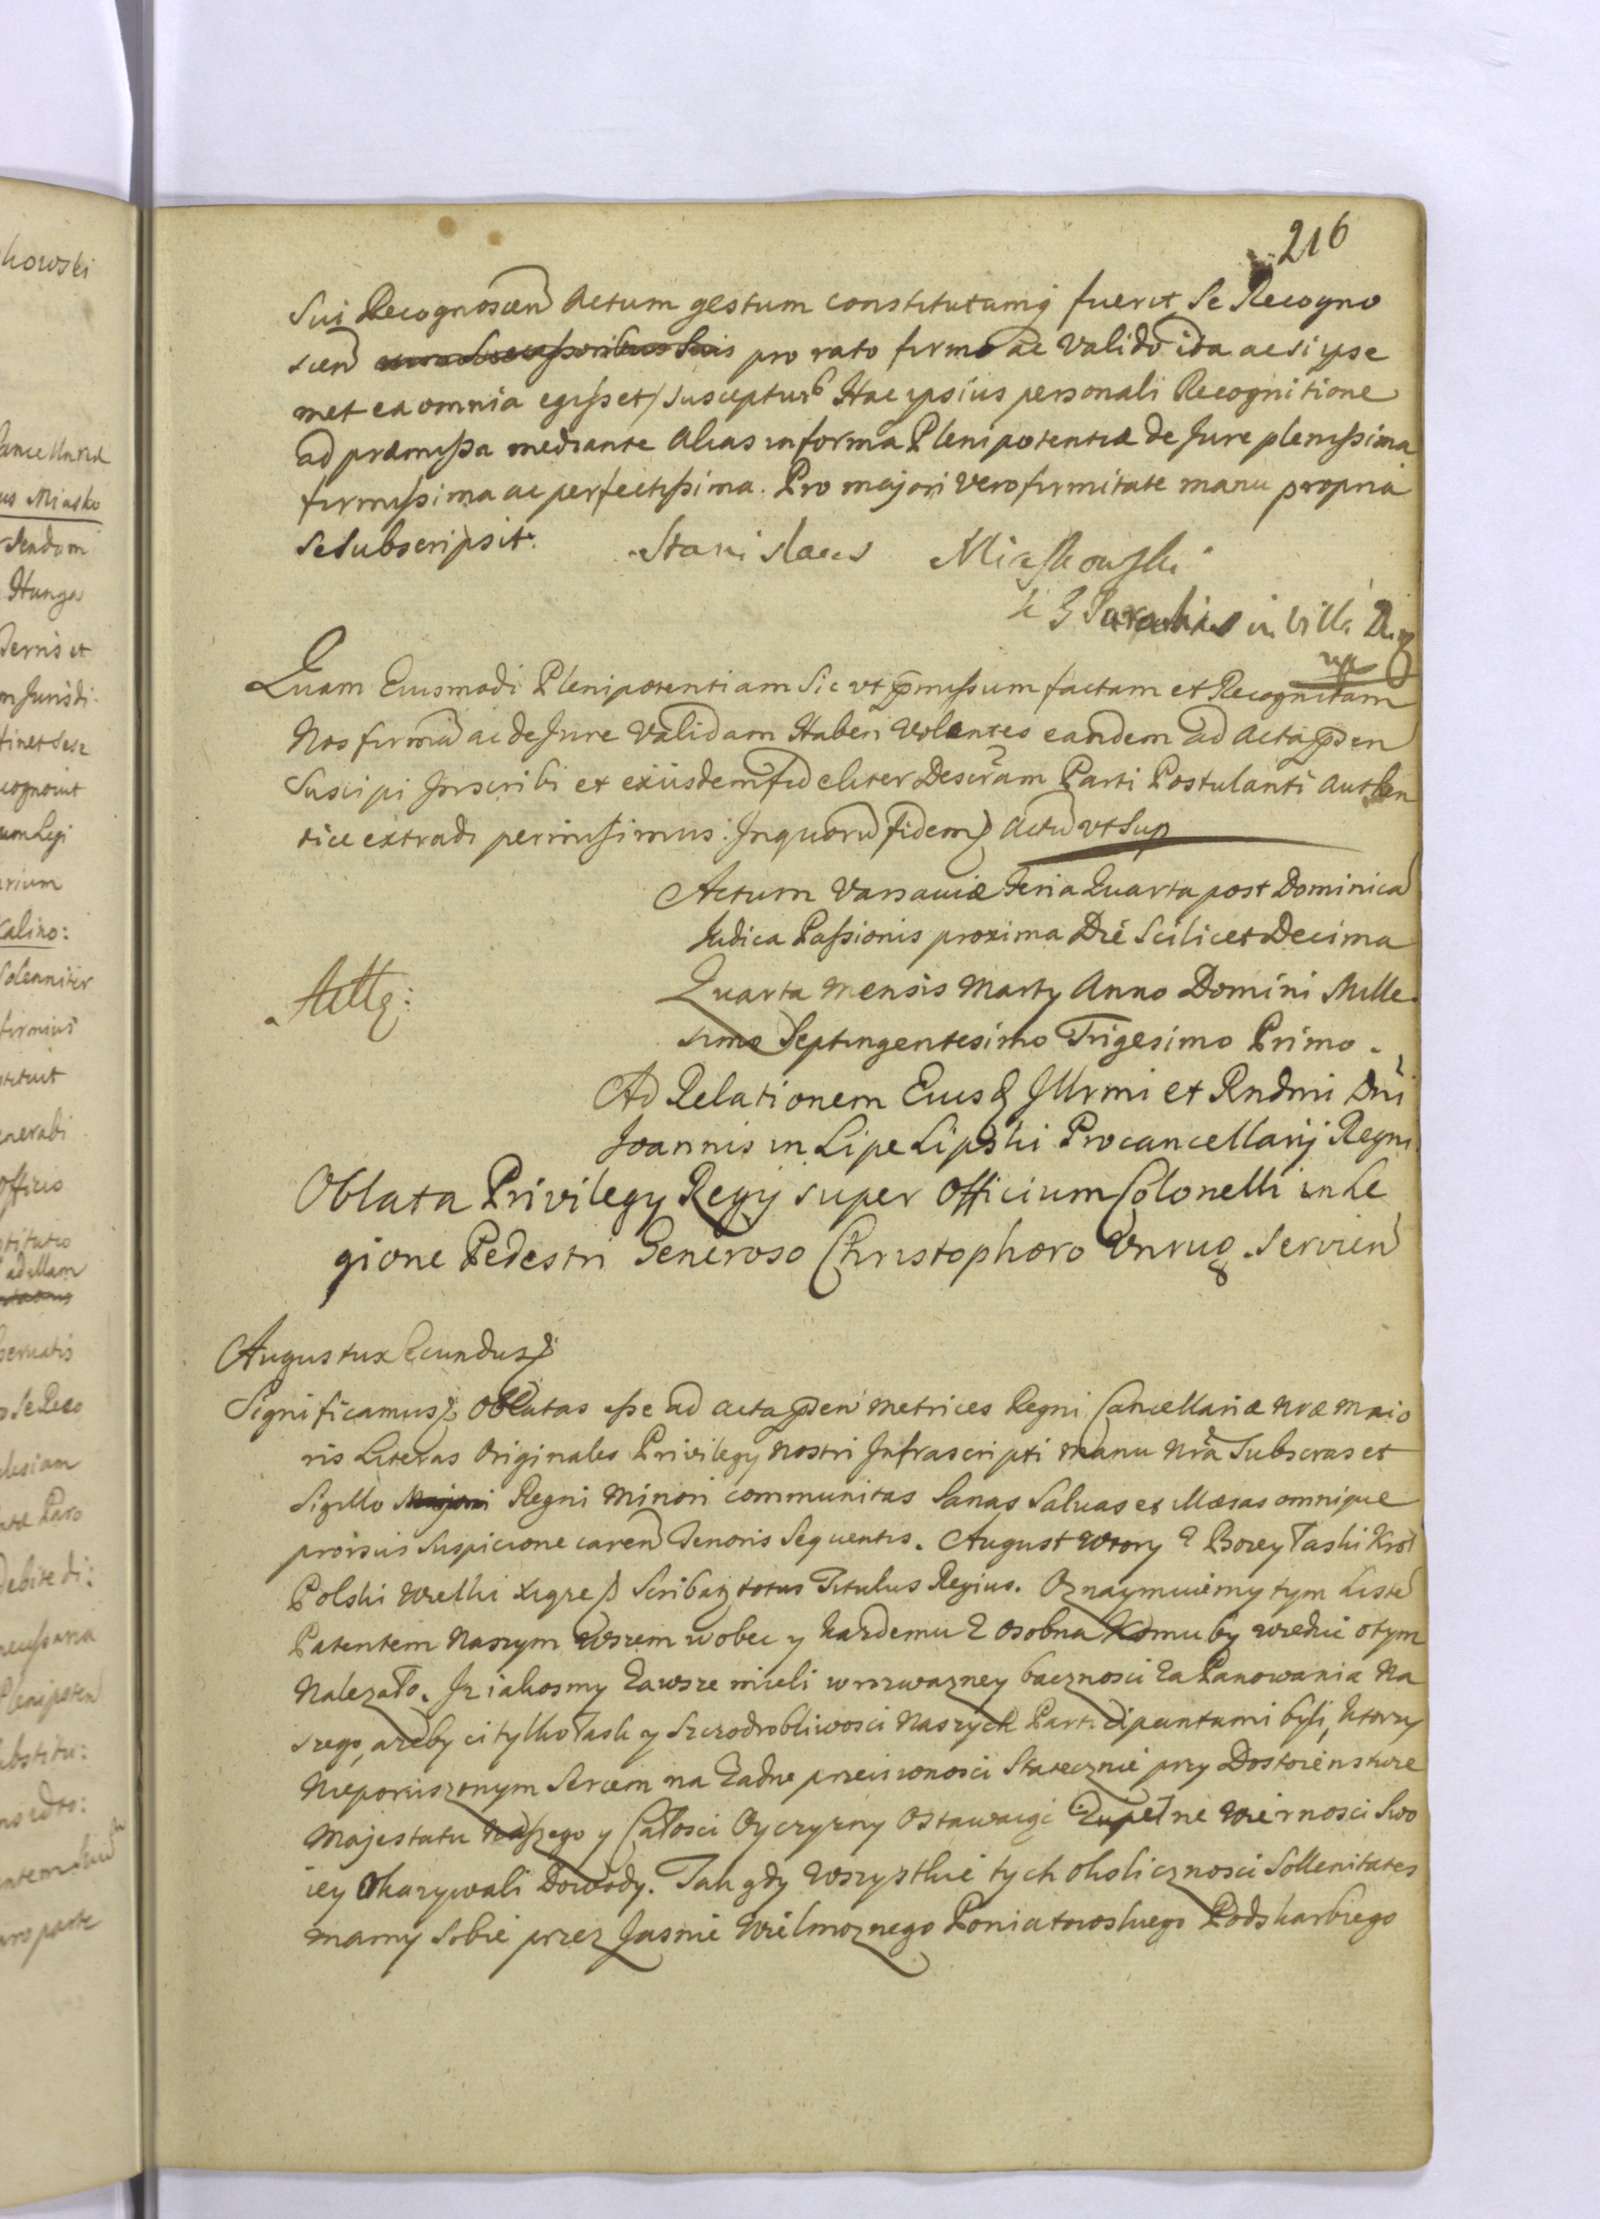 216
Sui Recognoscen Actum gestum constitutumq fuerit, Se Recogno
scen pro rato firmo ac Valido ita ac si ipse
met ea omnia egisset suscepturq Hac ipsius personali Recognitione
ad præmissa mediante Alias in forma Plenipotentiæ de Jure plenissima
firmissima ac perfectissima. Pro majori vero firmitate manu propria
se subscripsit. Stanislaus Miaskowski
in villa
Quam Eiusmodi Plenipotentiam sic vt pmissum factam et Recognitam
Nos firmã ac de Jure Validam Haberi Volentes eandem ad Acta pñsen
Suscipi Jnscribi et exiisdem fideliter Descrãm Parti Postulanti Authen
tice extradi permisimus. Jnquorũ fidem Actũ vt Sup
Actum Varsaviæ Feria Quarta post Dominicã
Judica Passionis proxima Die Scilicet Decima
Quarta Mensis Martij Anno Domini Mille
simo Septingentesimo Trigesimo Primo.
Ad Relationem Eiusd Jllrmi et Rndmi Dni
Joannis in Lipe Lipski Procancellarij Regni
Oblata Privilegy Regij super Officium Colonelli in Le
gione Pedestri Generoso Christophoro Vnrug Servien
Augustus Secundus
Significamus Oblatas esse ad acta pñsen Metrices Regni Cancellariæ Nræ Maio
ris Literas Originales Privilegy nostri Jnfrascripti Manu Nrã Subscras et
Sigillo Majori Regni Minori communitas Sanas Salvas et Jllæsas omnique
prorsus Suspicione caren Tenoris Sequentis. August Wtory z Bozey Łaski Krol
Polski Wielki Xıąze Scribatz totus Titulus Regius. Oznaymuiemy tym Listẽ
Patentem Naszym Wszem wobec y kazdemu z osobna komu by wiedzic o tym
Nalezało. Jz iakosmy Zawsze mieli w rozwazney bacznosci Za Panowania Na
szego, azeby ci tylko Łask y Szczodrobliwosci Naszych Participantami byli, ktorzy
Nieporuszonym Sercem na Zadne przeciwnosci Statecznie przy Dostoienstwie
Majestatu Naszego y Całosci Oyczyzny Ostawaiąc Zupełne Wiernosci Swo
iey Okazywali Dowody. Tak gdy Wszystkie tych okolicznosci Sollenitates
mamy Sobie przez Jasnie Wielmoznego Poniatowskiego Podskarbiego